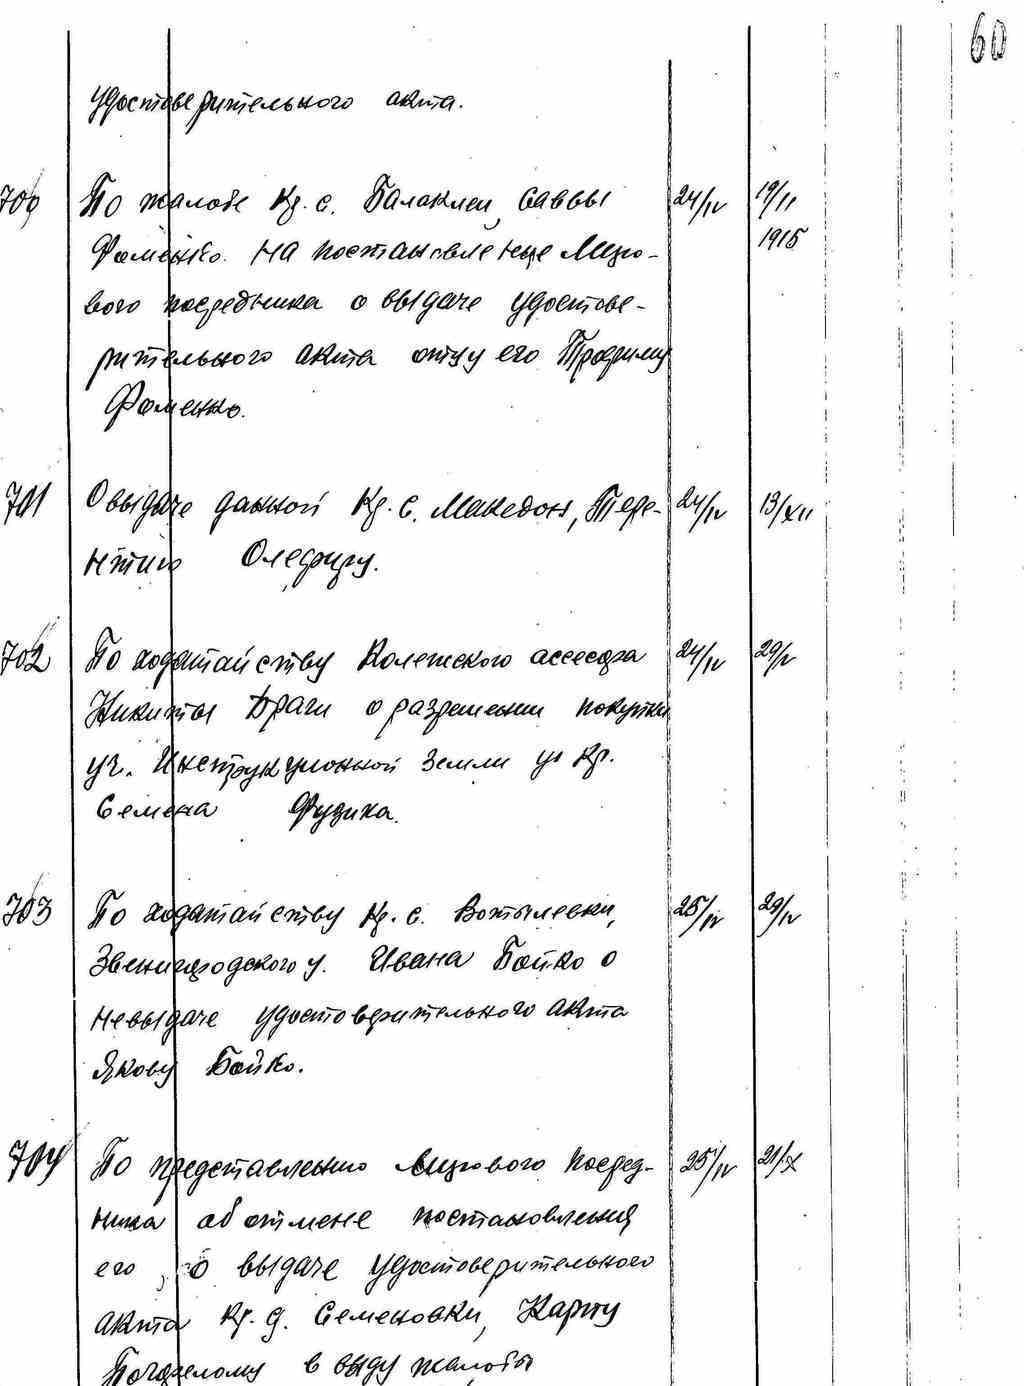 60
удостоверительного акта.
700 По жалобе Кр. с. Балаклеи, Саввы 24/IV 19/II
Фоменко. на постановление Миро- 1915
вого посредника о выдаче удостове-
рительного акта отцу его Трофиму
Фоменко.
701 О выдаче данной Кр. с. Македон, Тере- 24/IV 13/XII
нтию Олефиру.
702 По ходатайству Колежского ассесора 24/IV 29/V
Никиты Драги о разрешении покупки
уч. Инструкционной земли у Кр.
Семена Фузика.
703 По ходатайству Кр. с. Вотылевки, 25/IV 29/IV
Звенигородского у. Ивана Бойко о
невыдаче удостоверительного акта
Якову Бойко.
704 По представлению Мирового посред- 25/IV 21/IX
ника об отмене постановления
его, о выдаче удостоверительного
акта Кр. д. Семеновки, Карпу
Погорелому в виду жалобы